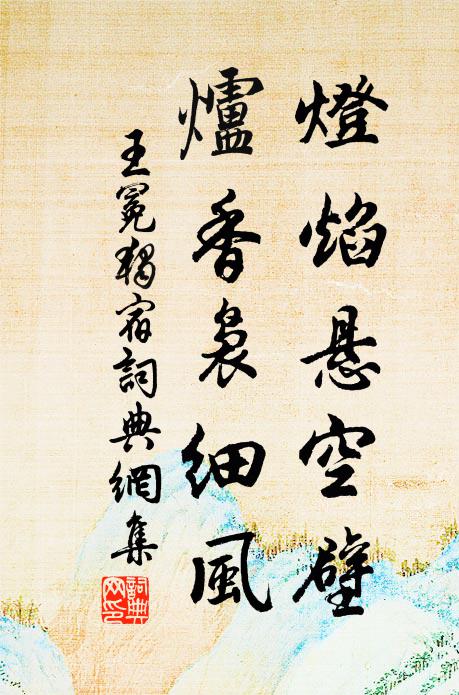 燈焰懸空壁
爐香裊細風
王冕獨宿詞典網集